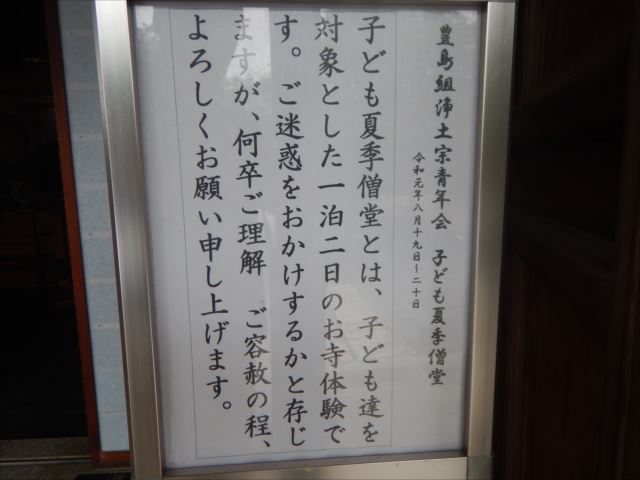 豊島組浄土宗青年会 子ども夏季僧堂
令和元年八月十九日〜二十日
子ども夏季僧堂とは、子ども達を
対象とした一泊二日のお寺体験で
す。ご迷惑をおかけするかと存じ
ますが、何卒ご理解 ご容赦の程、
よろしくお願い申し上げます。